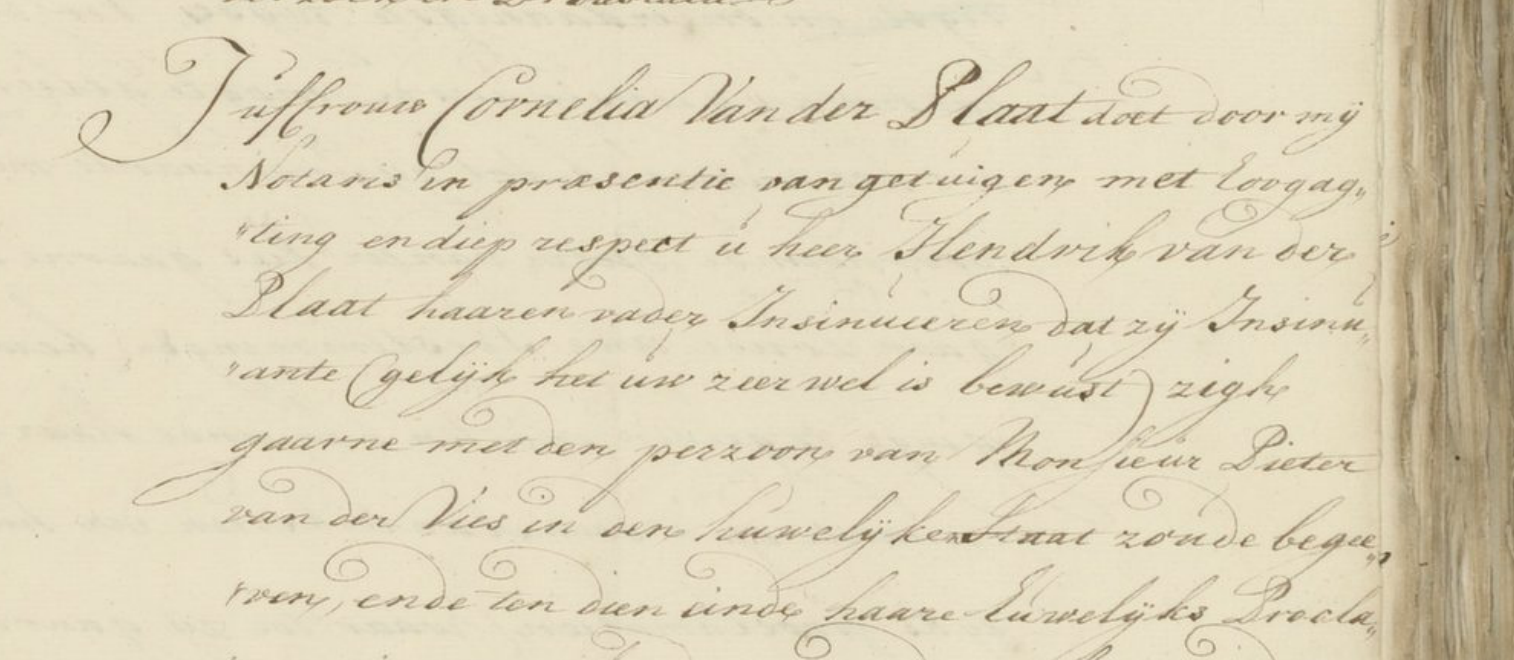 Juffrouw Cornelia Van der Plaat doet door mij
Notaris in præsentie van getuigen met hoogag„
„ting en diep respect ú heer Hendrik van der
Plaat haaren vader Insinúeeren dat zij Insinú„
„ante (gelijk het úw zeer wel is bewúst) zigh
gaarne met den perzoon van Monsieur Pieter
van der Vies in den húwelijken Staat zoúde begee„
„ven, ende ten dien einde haare húwelijks Procla„